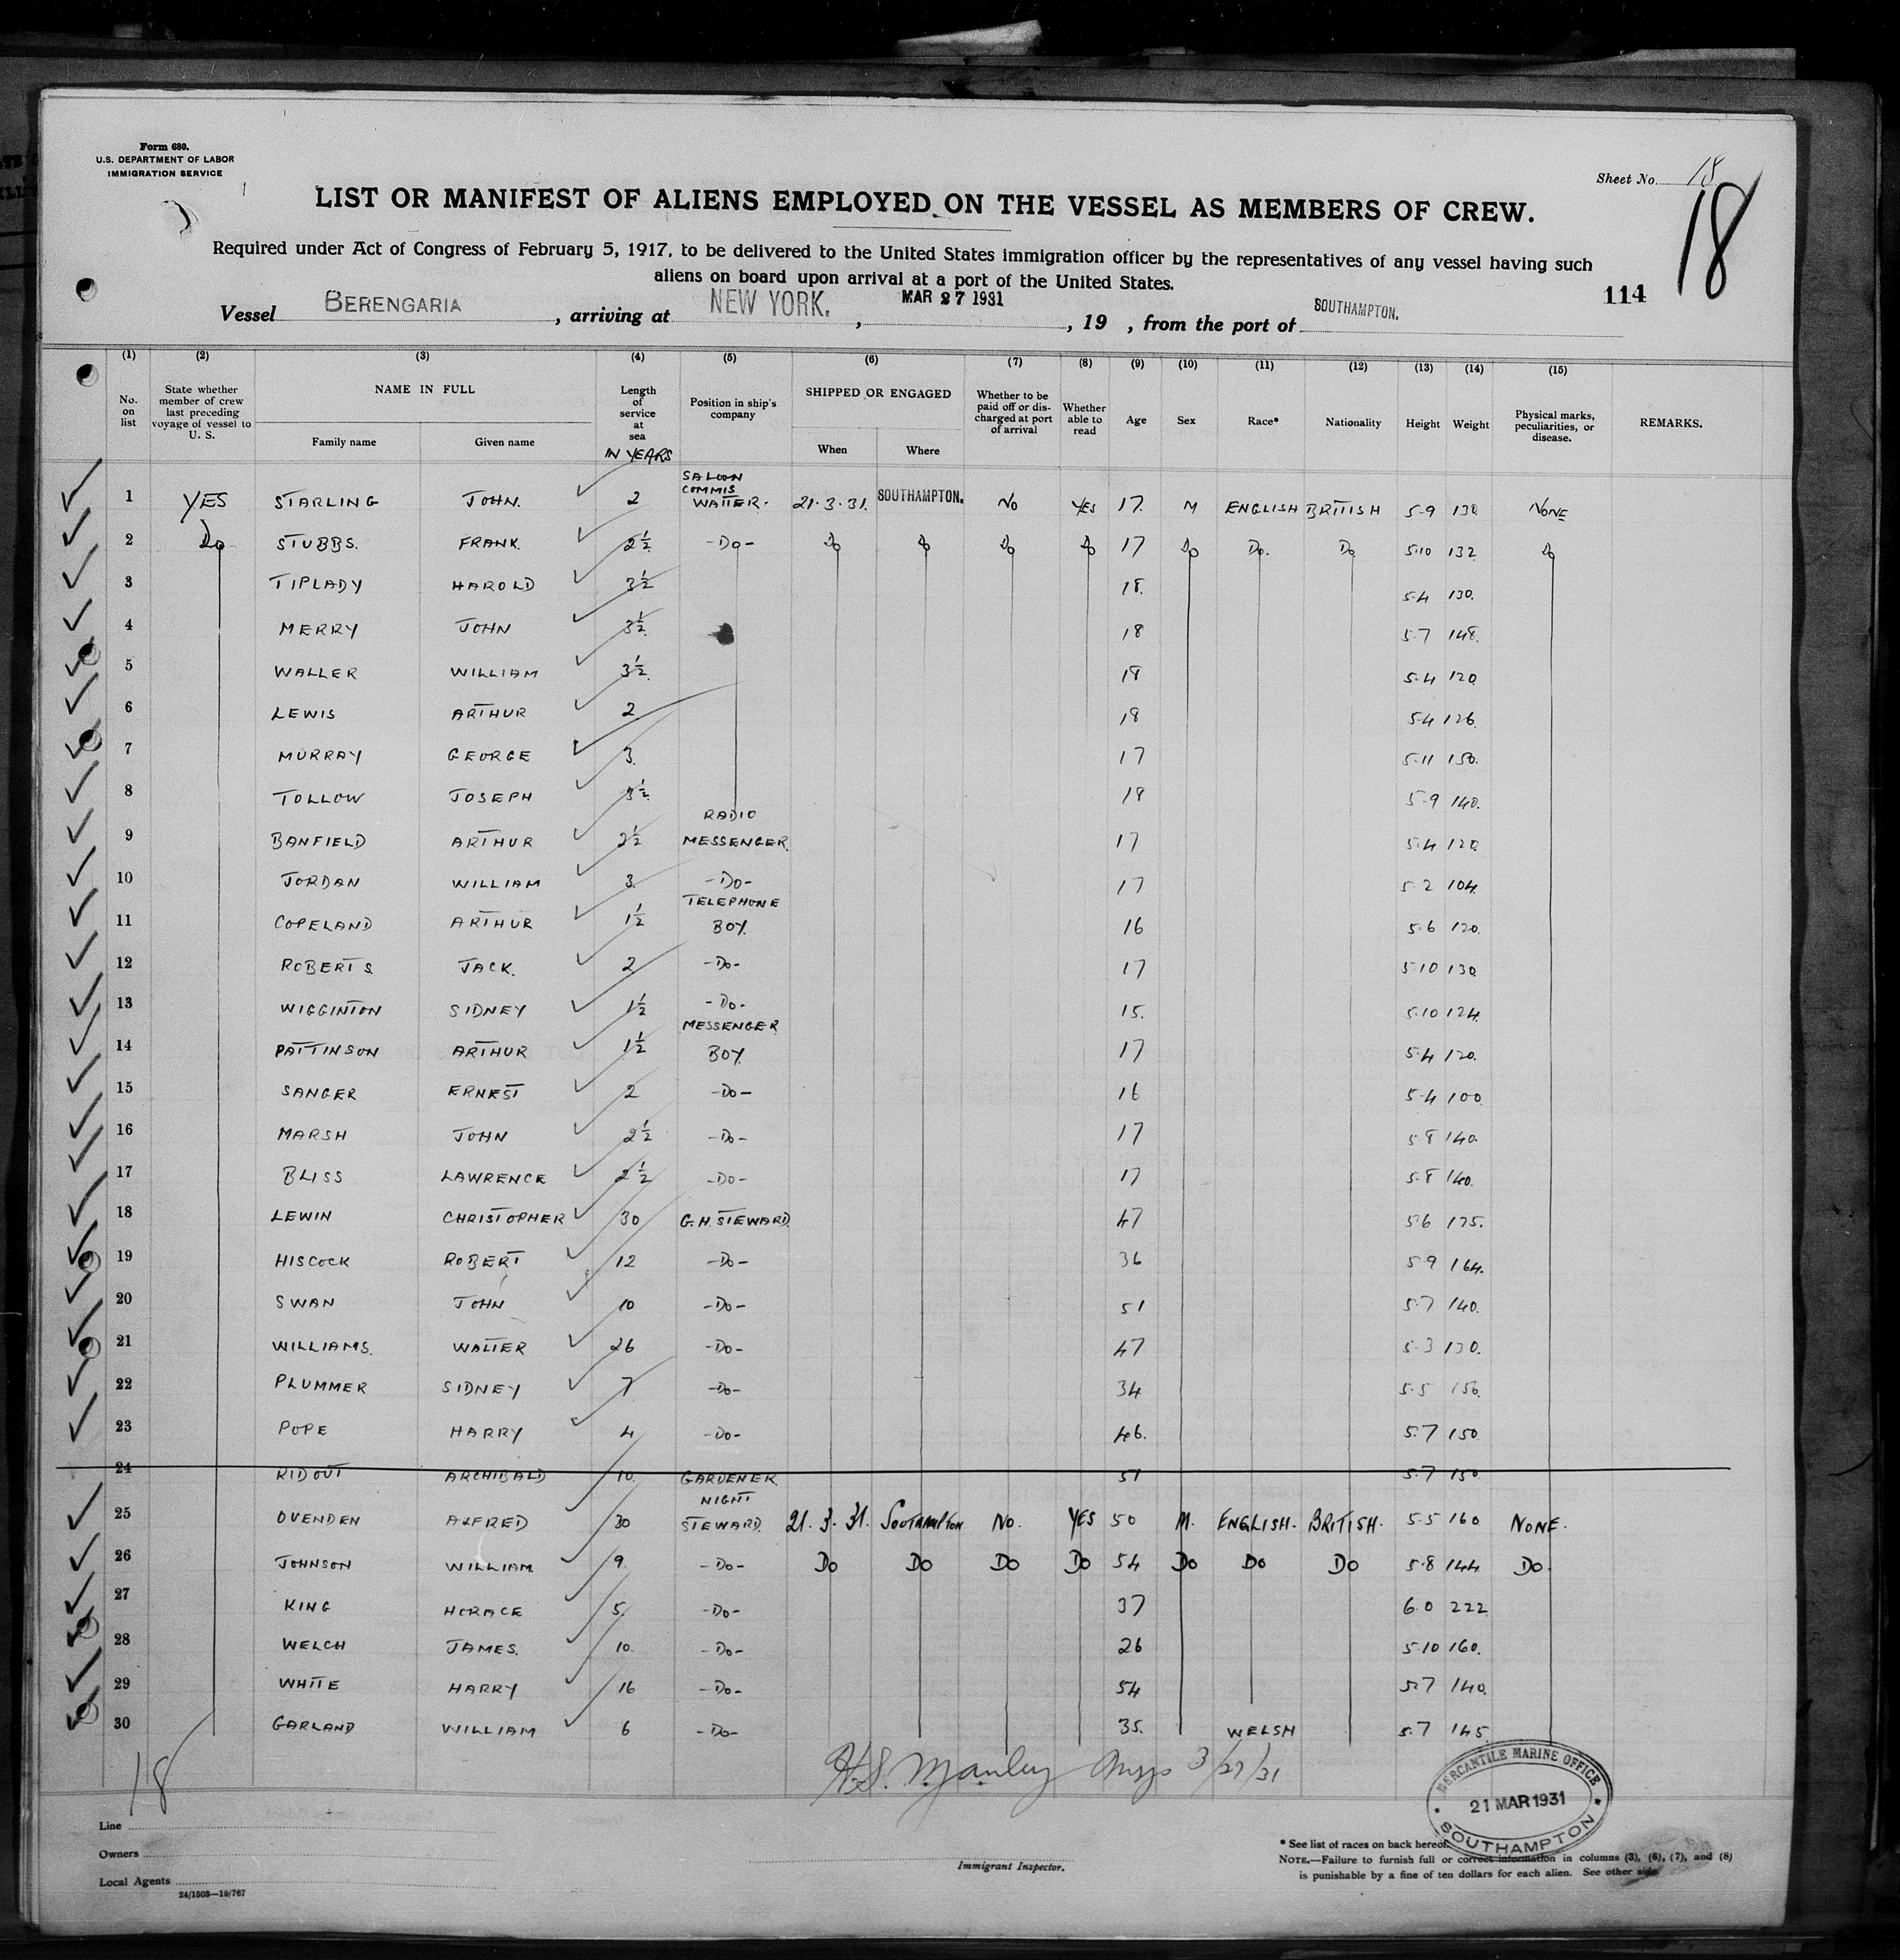 Form 680.
U.S. DEPARTMENT OF LABOR
IMMIGRATION SERVICE
Sheet No. 18
18
LIST OR MANIFEST OF ALIENS EMPLOYED ON THE VESSEL AS MEMBERS OF CREW.
Required under Act of Congress of February 5, 1917, to be delivered to the United States immigration officer by the representatives of any vessel having such
aliens on board upon arrival at a port of the United States.
114
Vessel BERENGARIA, arriving at NEW YORK., MAR 27 1931, 19 , from the port of SOUTHAMPTON.
(1) (2) (3) (4) (5) (6) (7) (8) (9) (10) (11) (12) (13) (14) (15)
No. on list
State whether member of crew last preceding voyage of vessel to U. S.
NAME IN FULL
Family name
Given name
Length of service at sea
IN YEARS
Position in ship's company
SHIPPED OR ENGAGED
When
Where
Whether to be paid off or discharged at port of arrival
Whether able to read
Age
Sex
Race*
Nationality
Height
Weight
Physical marks, peculiarities, or disease.
REMARKS.
1 YES STARLING JOHN. 2 SALOON COMMIS WAITER. 21.3.31. SOUTHAMPTON. NO YES 17. M ENGLISH BRITISH 5-9 130 NONE
2 Do STUBBS. FRANK. 2½ -Do- Do Do Do Do 17 Do Do. Do 5.10 132 Do
3 TIPLADY HAROLD 3½ 18. 5.4 130.
4 MERRY JOHN 3½. 18 5.7 148.
5 WALLER WILLIAM 3½. 18 5.4 120
6 LEWIS ARTHUR 2 18 5.4 126
7 MURRAY GEORGE 3. 17 5.11 150.
8 TOLLOW JOSEPH 3½ 18 5-9 140.
9 BANFIELD ARTHUR 2½ RADIO MESSENGER. 17 5.4 120
10 JORDAN WILLIAM 3. -Do- 17 5.2 104.
11 COPELAND ARTHUR 1½ TELEPHONE BOY. 16 5.6 120.
12 ROBERTS JACK. 2 -Do- 17 5.10 130
13 WIGGINTON SIDNEY 1½ -Do- 15. 5.10 124.
14 PATTINSON ARTHUR 1½ MESSENGER BOY. 17 5.4 120.
15 SANGER ERNEST 2 -Do- 16 5.4 100
16 MARSH JOHN 2½ -Do- 17 5.8 140.
17 BLISS LAWRENCE 2½ -Do- 17 5.8 140.
18 LEWIN CHRISTOPHER 30 G.H. STEWARD. 47 5.6 175.
19 HISCOCK ROBERT 12 -Do- 36 5.9 164.
20 SWAN JOHN 10 -Do- 51 5.7 140.
21 WILLIAMS. WALTER 26 -Do- 47 5.3 130.
22 PLUMMER SIDNEY 7 -Do- 34 5.5 150.
23 POPE HARRY 4 -Do- 46. 5.7 150
24 RIDOUT ARCHIBALD 10. GARDENER 51 5.7 150
25 OVENDEN ALFRED 30 NIGHT STEWARD. 21.3.31. SOUTHAMPTON NO. YES 50 M. ENGLISH. BRITISH. 5.5 160 NONE.
26 JOHNSON WILLIAM 9. -Do- Do Do Do Do 54 Do Do Do 5.8 144 Do.
27 KING HORACE 5. -Do- 37 6.0 222
28 WELCH JAMES. 10. -Do- 26 5.10 160.
29 WHITE HARRY 16 -Do- 54 5.7 140.
30 GARLAND WILLIAM 6 -Do- 35. WELSH 5.7 145
18
H.S. Manley 3/27/31
MERCANTILE MARINE OFFICE
21 MAR 1931
SOUTHAMPTON
Line
Owners
Local Agents
24/1503—19/767
Immigrant Inspector.
* See list of races on back hereof.
NOTE.—Failure to furnish full or correct information in columns (3), (6), (7), and (8)
is punishable by a fine of ten dollars for each alien. See other side.